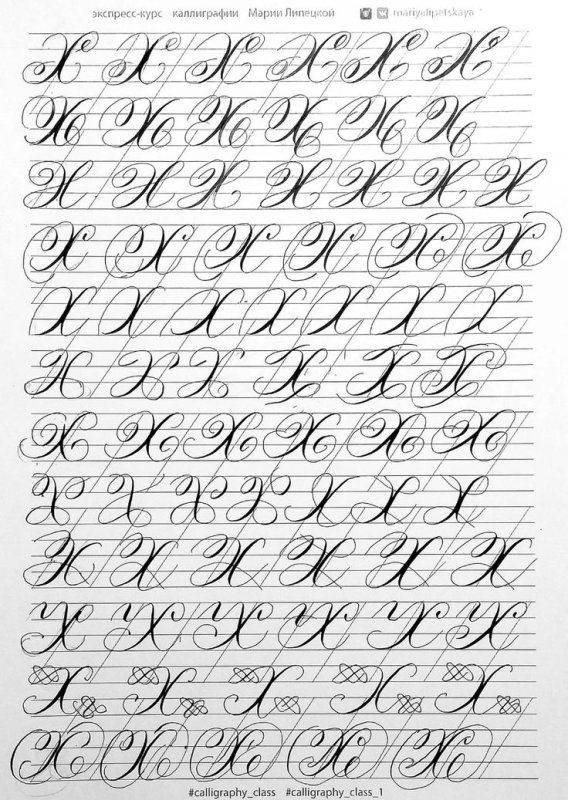 экспресс-курс каллиграфии Марии Липецкой mariyalipetskaya
Х Х Х Х Х Х
Х Х Х Х Х Х
Х Х Х Х Х Х Х
Х Х Х Х Х Х
Х Х Х Х Х Х Х
Х Х Х Х Х Х
Х Х Х Х Х Х
Х Х Х Х Х Х Х
Х Х Х Х Х Х
Х Х Х Х Х Х
Х Х Х Х Х
Х Х Х Х Х
#calligraphy_class #calligraphy_class_1